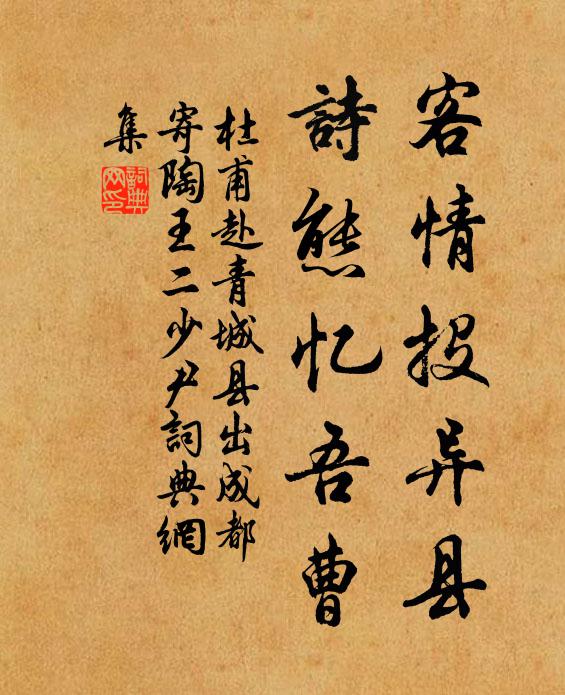 客情投异县
詩態忆吾曹
杜甫赴青城县出成都
寄陶王二少尹詞典網
集
詞典
网印